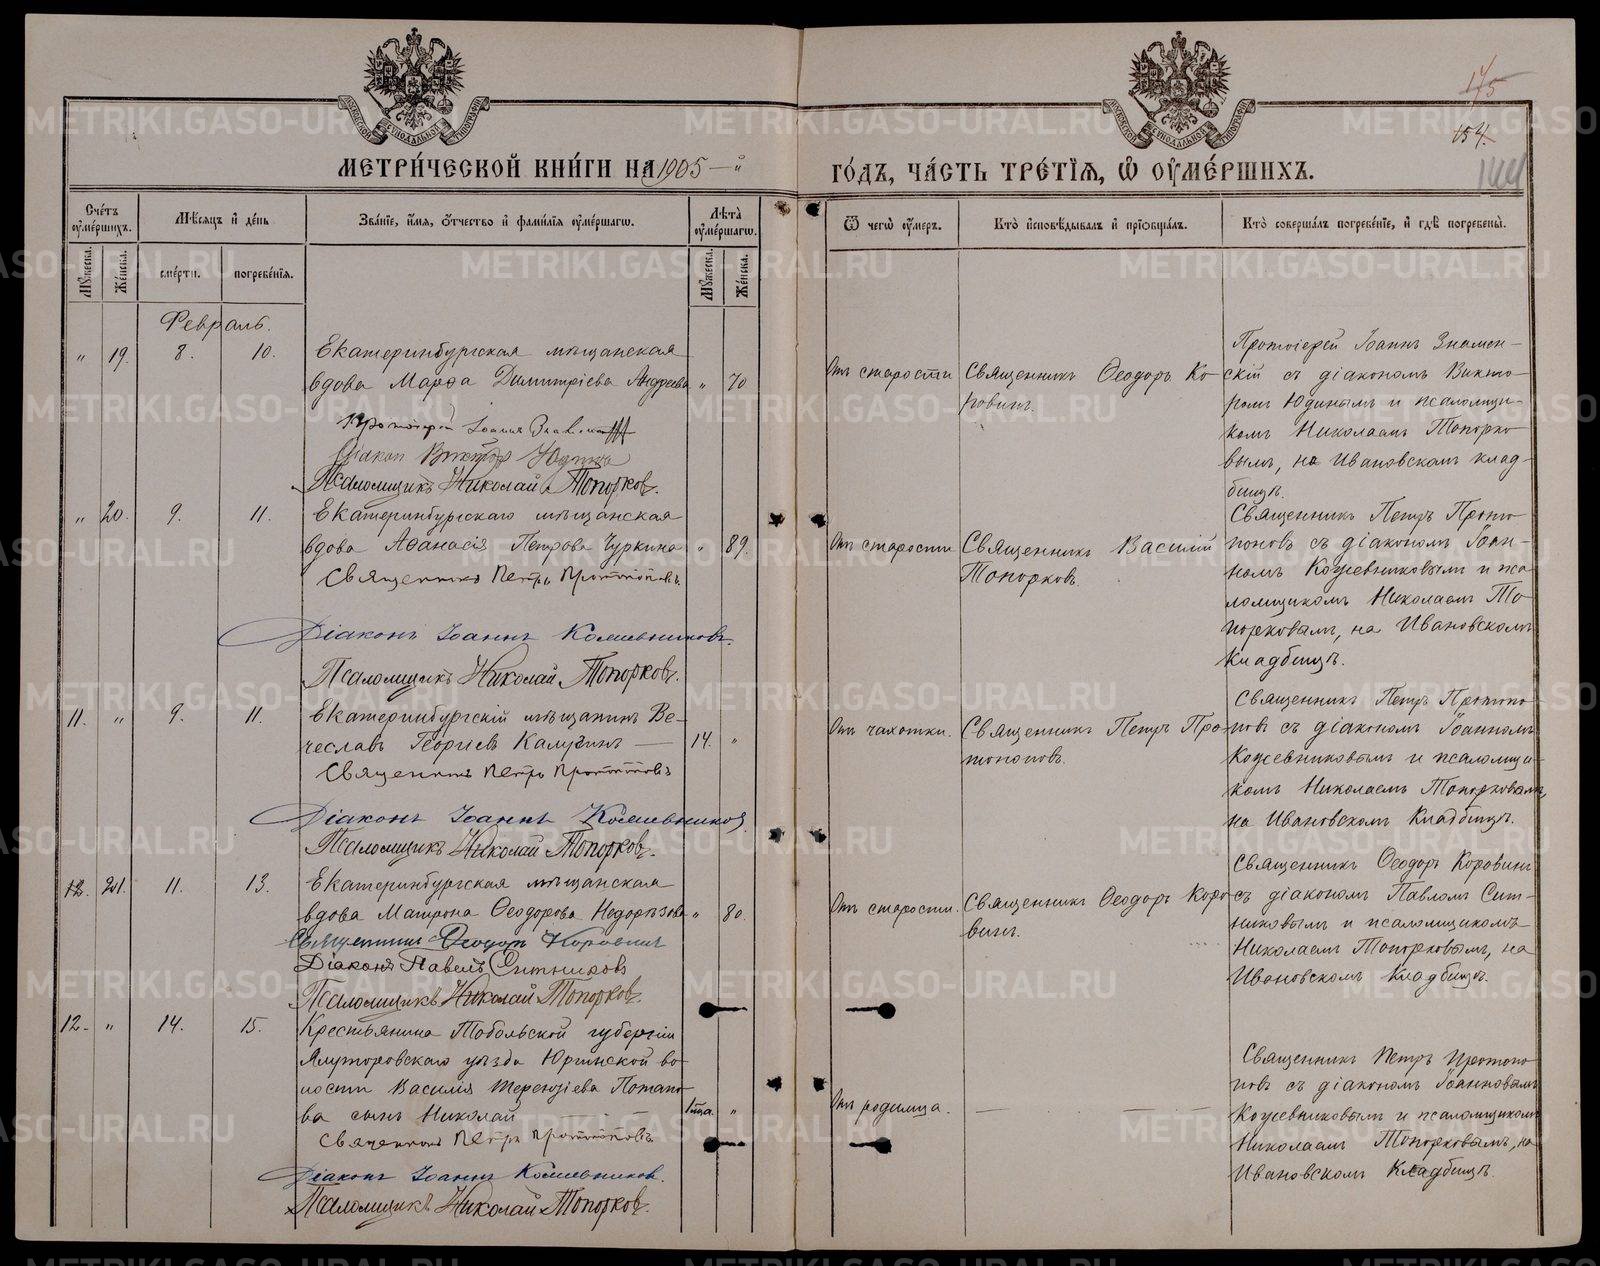 175
154.
144
МЕТРИ́ЧЕСКОЙ КНИ́ГИ НА 1905-й
ГО́ДЪ, ЧА́СТЬ ТРЕ́ТІЯ, Ѽ ОУМЕ́РШИХЪ.
Сче́тъ оуме́ршихъ.
Му́жеска.
Же́нска.
Мѣ́сяцъ и де́нь
сме́рти.
погребе́нія.
Зва́ніе, и́мя, о́тчество и фами́лія оуме́ршагѡ.
Лѣ́та оуме́ршагѡ.
Му́жеска.
Же́нска.
Ѿ чегѡ̀ оу́меръ.
Кто̀ исповѣ́дывалъ и пріобща́лъ.
Кто̀ соверша́лъ погребе́ніе, и гдѣ̀ погребены̀.
Февраль.
" 19. 8. 10.
Екатеринбургская мѣщанская
вдова Марѳа Димитріева Андреева " 70
Протоіерей Іоаннъ Знаменскій
Діаконъ Викторъ Юдинъ
Псаломщикъ Николай Топорковъ.
Отъ старости
Священникъ Ѳеодоръ Ко-
ровинъ.
Протоіерей Іоаннъ Знамен-
скій съ діакономъ Викто-
ромъ Юдинымъ и псаломщи-
комъ Николаемъ Топорко-
вымъ, на Ивановскомъ клад-
бищѣ.
" 20. 9. 11.
Екатеринбургскаго мѣщанская
вдова Аѳанасія Петрова Чуркина " 89.
Священникъ Петръ Протопоповъ
Діаконъ Іоаннъ Кожевниковъ.
Псаломщикъ Николай Топорковъ.
Отъ старости
Священникъ Василій
Топорковъ.
Священникъ Петръ Прото-
поповъ съ діакономъ Іоан-
номъ Кожевниковымъ и пса-
ломщикомъ Николаемъ То-
порковымъ, на Ивановскомъ
Кладбищѣ.
11. " 9. 11.
Екатеринбургскій мѣщанинъ Ве-
чеславъ Георгіевъ Калугинъ — 14. "
Священникъ Петръ Протопоповъ
Діаконъ Іоаннъ Кожевниковъ
Псаломщикъ Николай Топорковъ.
Отъ чахотки.
Священникъ Петръ Про-
топоповъ.
Священникъ Петръ Протопо-
повъ съ діакономъ Іоанномъ
Кожевниковымъ и псаломщи-
комъ Николаемъ Топорковымъ,
на Ивановскомъ Кладбищѣ.
12. 21. 11. 13.
Екатеринбургская мѣщанская
вдова Матрона Ѳеодорова Недорѣзова " 80.
Священникъ Ѳеодоръ Коровинъ
Діаконъ Павелъ Ситниковъ
Псаломщикъ Николай Топорковъ.
Отъ старости.
Священникъ Ѳеодоръ Коро-
винъ.
Священникъ Ѳеодоръ Коровинъ
съ діакономъ Павломъ Сит-
никовымъ и псаломщикомъ
Николаемъ Топорковымъ, на
Ивановскомъ Кладбищѣ.
12. " 14. 15.
Крестьянина Тобольской губерніи
Ялуторовскаго уѣзда Юргинской во-
лости Василія Терентіева Потапо-
ва сынъ Николай — 1 мца. "
Священникъ Петръ Протопоповъ
Діаконъ Іоаннъ Кожевниковъ.
Псаломщикъ Николай Топорковъ.
Отъ родимца.
— —
Священникъ Петръ Протопо-
повъ съ діакономъ Іоанновымъ
Кожевниковымъ и псаломщикомъ
Николаемъ Топорковымъ, на
Ивановскомъ Кладбищѣ.
METRIKI.GASO-URAL.RU